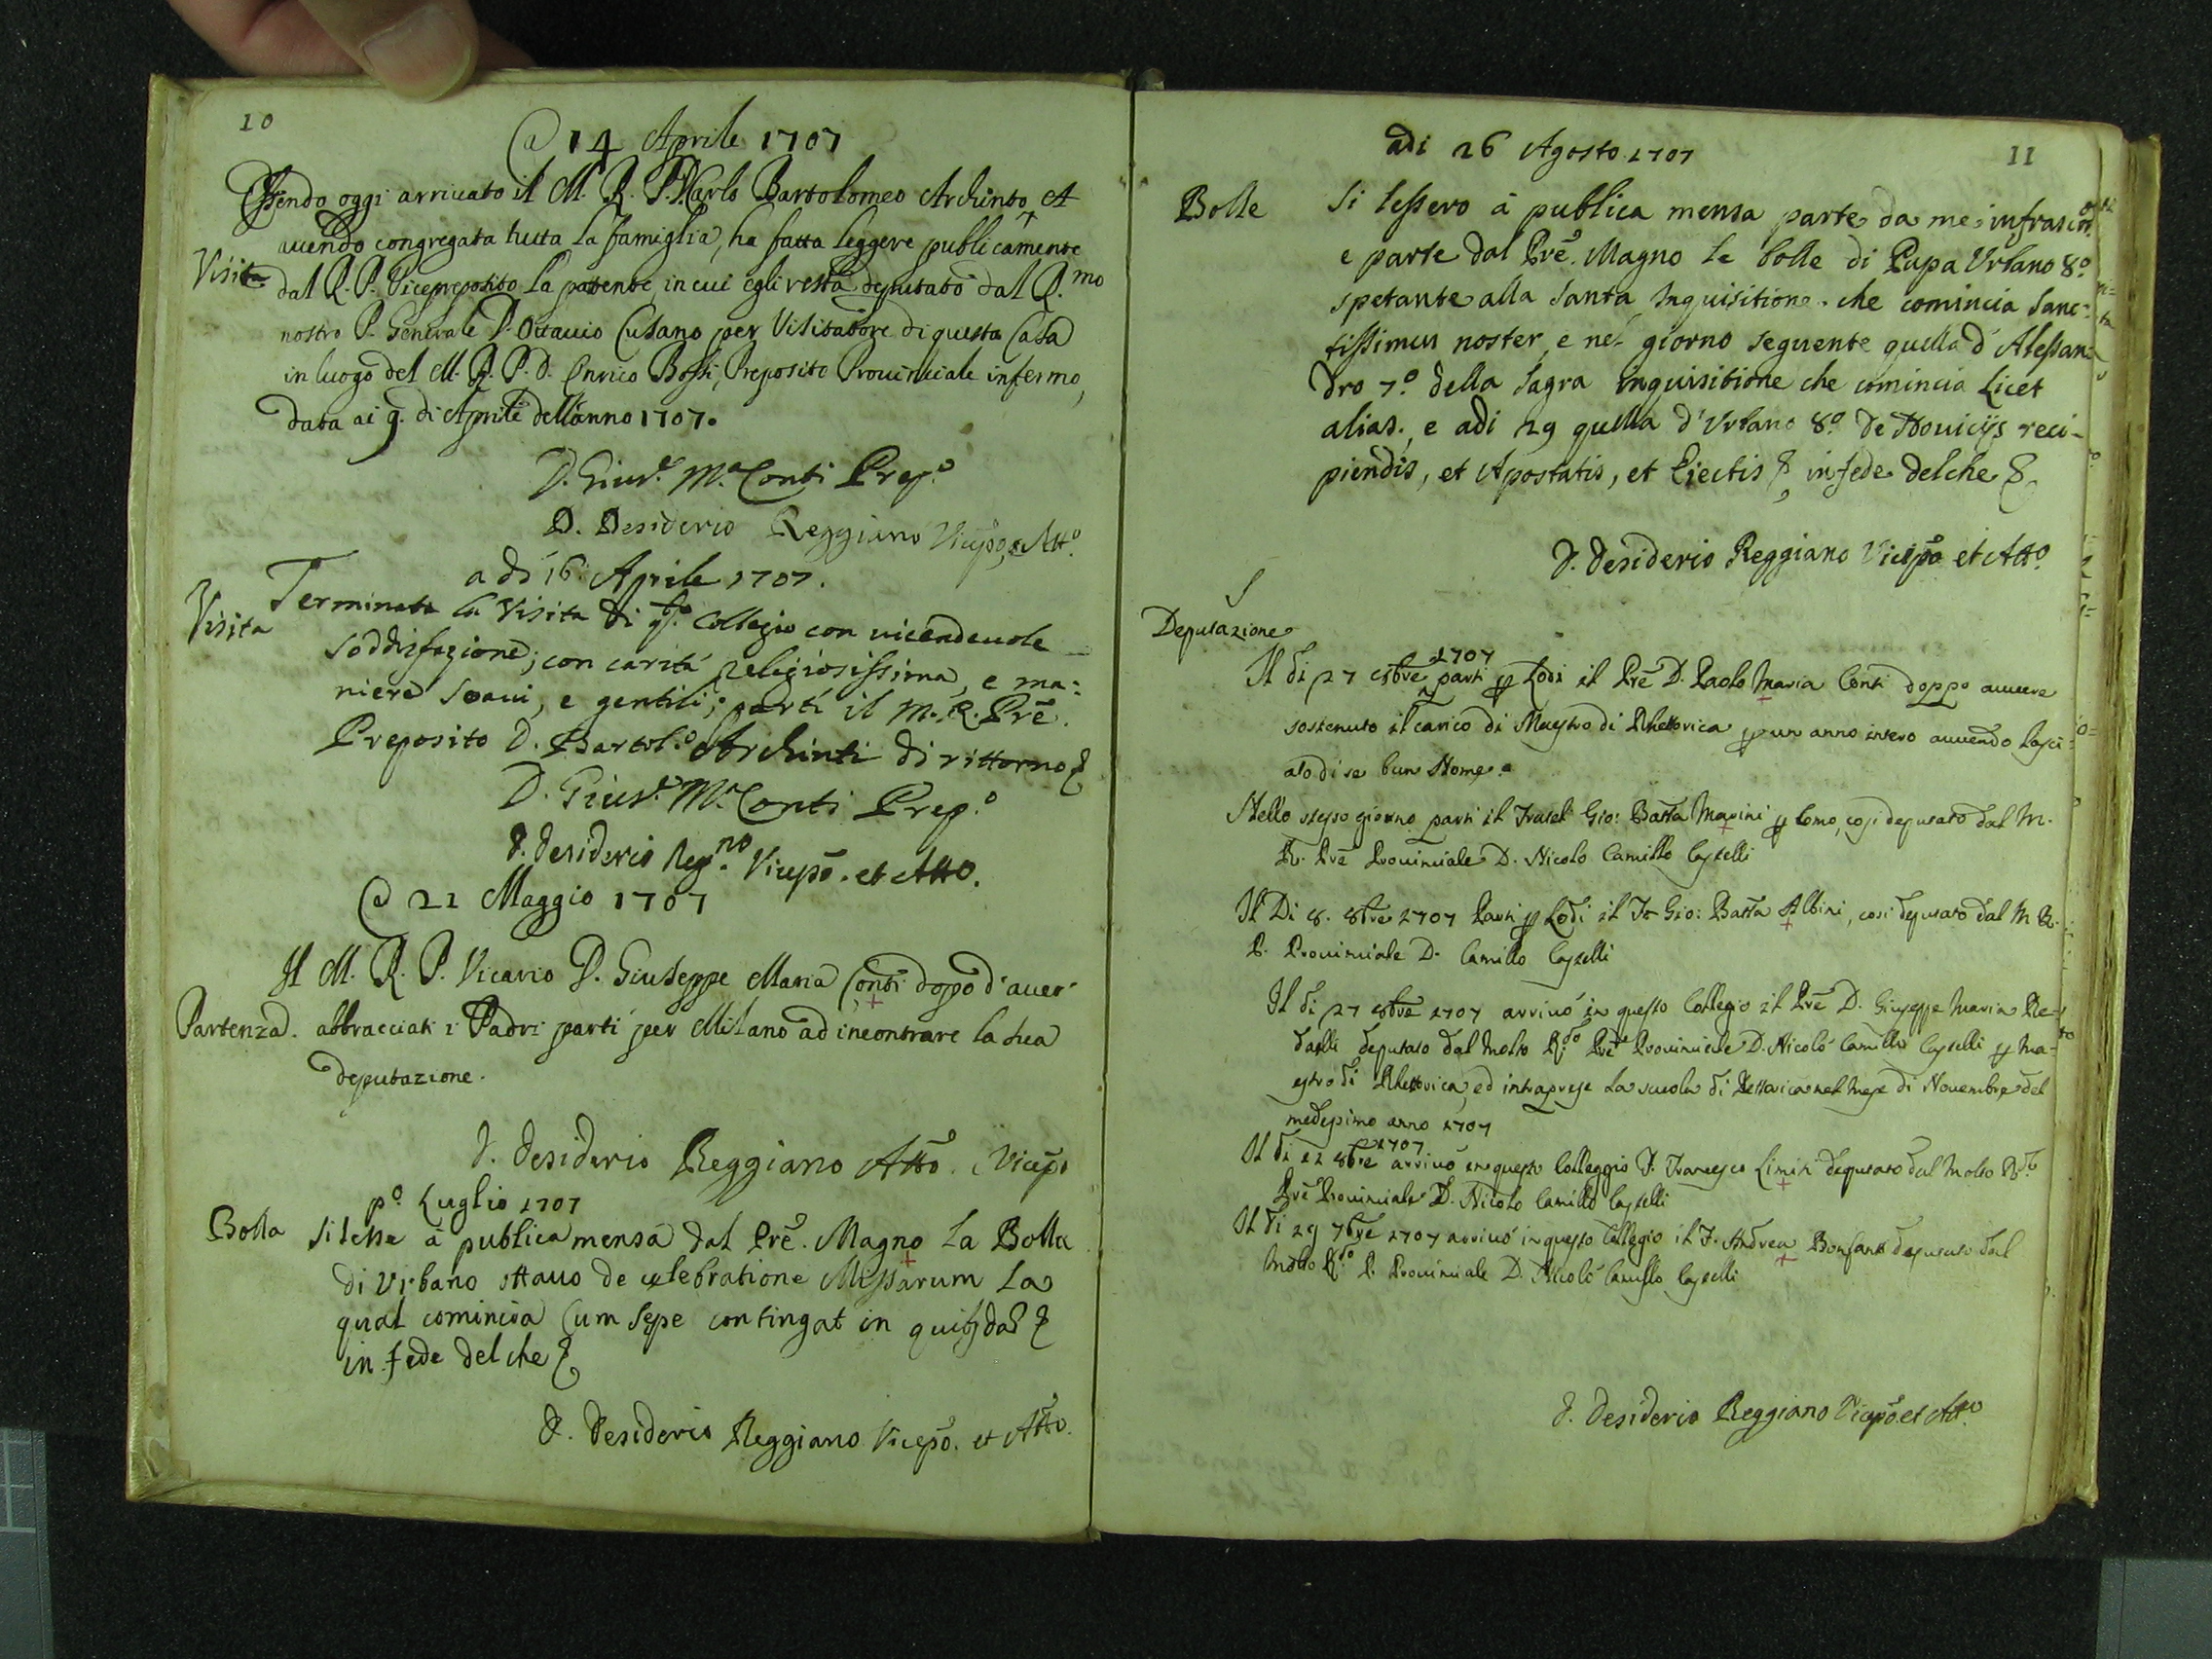 10
@ 14 Aprile 1707
Essendo oggi arrivato il M. R. P. D. Carlo Bartolomeo Archinto, et A
vuendo congregata tutta la famiglia, ha fatta leggere publicamente
Visita
dal R. P. Vicepreposito la patente, in cui egli resta deputato dal R.mo
nostro P. Generale D. Ottavio Cusano per Visitatore di questa Casa
in luogo del M. R. P. D. Enrico Bossi, Preposito Provinciale infermo,
data ai 9. di Aprile dell'anno 1707.
D. Gius.e M.a Conti Prep.o
D. Desiderio Reggiano Vicepo, e Att.o
a dì 16 Aprile 1707.
Visita
Terminata la Visita di q.to Collegio con vicendevole
soddisfazione; con carità religiosissima, e ma:
niere soavi, e gentili; partì il M. R. Prē.
Preposito D. Bartol.o Archinti di rittorno &
D. Gius.e M.a Conti Prep.o
D. Desiderio Regg.no Vicepō. et Atto.
@ 21 Maggio 1707
Il M. R. P. Vicario D. Giuseppe Maria Conti doppo d'aver
Partenza. abbracciati i Padri partì per Milano ad incontrare la sua
deputazione.
D. Desiderio Reggiano Attō. Vicepō
p.o Luglio 1707
Bolla Si lesse à publica mensa dal Prē. Magno la Bolla
di Urbano ottavo de celebratione Missarum la
qual comincia Cum Sepe contingat in quibsda3 &
in fede del che &
D. Desiderio Reggiano Vicepō. et Attō.
11
adi 26 Agosto 1707
Bolle Si lessero à publica mensa parte da me infrascri.
e parte dal Prē. Magno le bolle di Papa Urbano 8.o
spetante alla Santa Inquisitione. che comincia Sanc:
tissimus noster, e nel giorno seguente quella d'Alessan:
dro 7.o della Sagra inquisitione che comincia Licet
alias., e adi 29 quella d'Urbano 8.o De Novicijs reci-
piendis, et Apostatis, et Eiectis &, in fede del che &
D. Desiderio Reggiano Vicepō et Att.o
Deputazione
Il di 27 1707 parti p Lodi il Prē D. Paolo Maria Conti doppo avvere
sostenuto il carico di Maestro di Rhettorica p un anno intero avvendo lasci:
ato di se bun Nome.
Nello stesso giorno parti il Fratel Gio: Batta Marini p Como, cosi deputato dal M.
R. Prē Provinciale D. Nicolo Camillo Castelli
Il Di 8. 8bre 1707 Parti p Lodi il Fr Gio: Batta Albini, cosi deputato dal M R.
P. Provinciale D. Camillo Castelli
Il di 27 8bre 1707 arrivò in questo Collegio il Prē D. Giuseppe Maria Re-
daelli deputato dal Molto R.do Prē Provinciale D. Nicolò Camillo Castelli p Ma-
estro di Rhettorica, ed intraprese la scuola di Rettorica nel mese di Novembre del
medesimo anno 1707
Il di 21 8bre 1707 arrivò in questo Colleggio F. Francesco Limiti deputato dal Molto R.do
Prē Provinciale D. Nicolo Camillo Castelli
Il di 29 7bre 1707 arrivò in questo Collegio il F. Andrea Bonfanti deputato dal
Molto R.do P. Provinciale D. Nicolò Camillo Castelli
D. Desiderio Reggiano Vicepō et Att.o